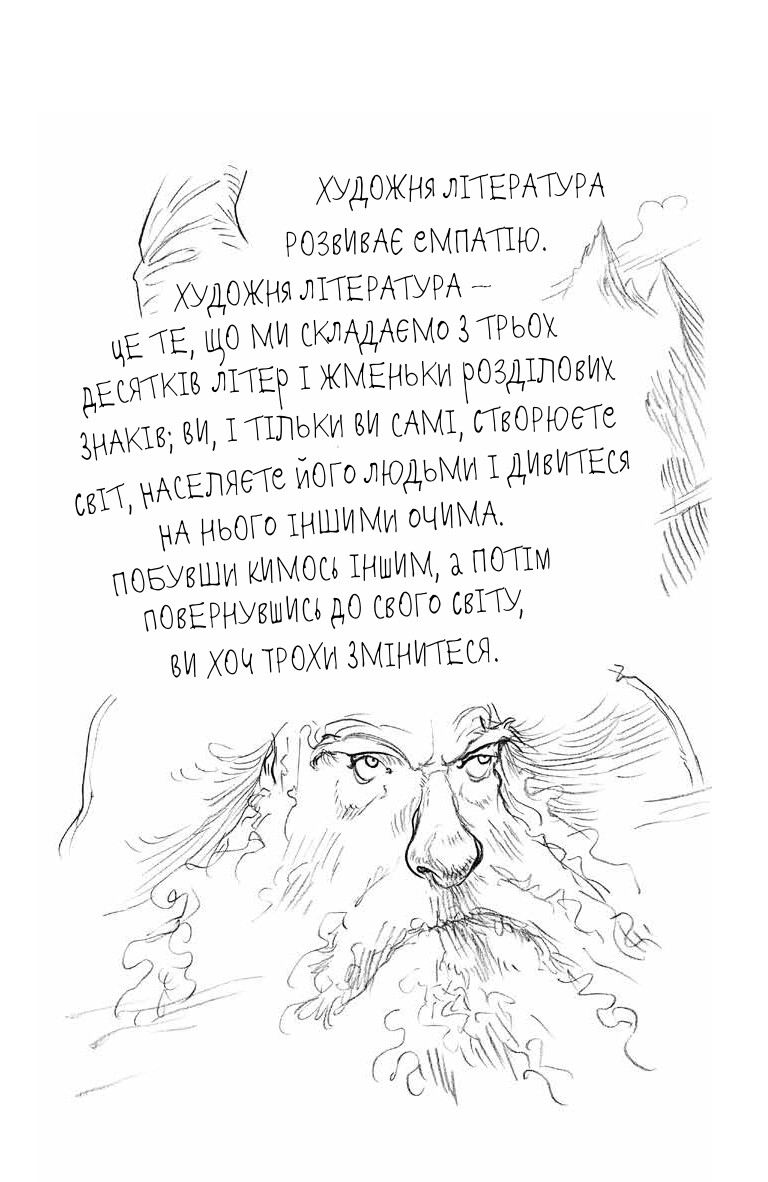 ХУДОЖНЯ ЛІТЕРАТУРА
РОЗВИВАЄ ЕМПАТІЮ.
ХУДОЖНЯ ЛІТЕРАТУРА –
ЦЕ ТЕ, ЩО МИ СКЛАДАЄМО З ТРЬОХ
ДЕСЯТКІВ ЛІТЕР І ЖМЕНЬКИ РОЗДІЛОВИХ
ЗНАКІВ; ВИ, І ТІЛЬКИ ВИ САМІ, СТВОРЮЄТЕ
СВІТ, НАСЕЛЯЄТЕ ЙОГО ЛЮДЬМИ І ДИВИТЕСЯ
НА НЬОГО ІНШИМИ ОЧИМА.
ПОБУВШИ КИМОСЬ ІНШИМ, А ПОТІМ
ПОВЕРНУВШИСЬ ДО СВОГО СВІТУ,
ВИ ХОЧ ТРОХИ ЗМІНИТЕСЯ.